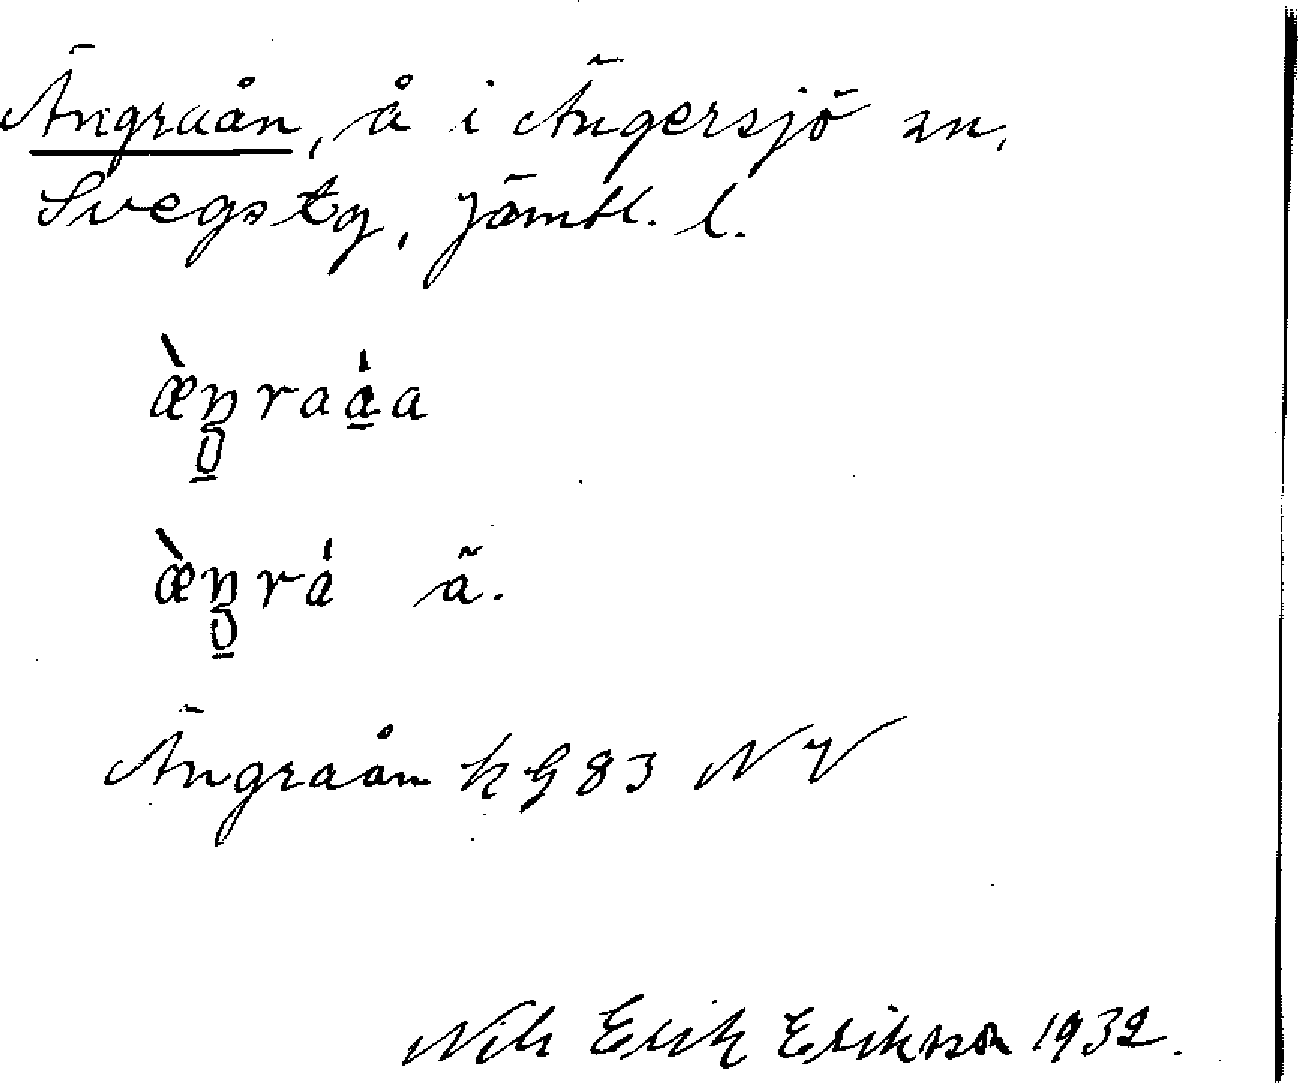 Ängraån, å i Ängersjö sn,
Svegs tg, Jämtl. l.
æ̀ŋraa̍a
æ̀ŋra̍ ä.
Ängraån kg 83 NV
Nils Erik Eriksson 1932.